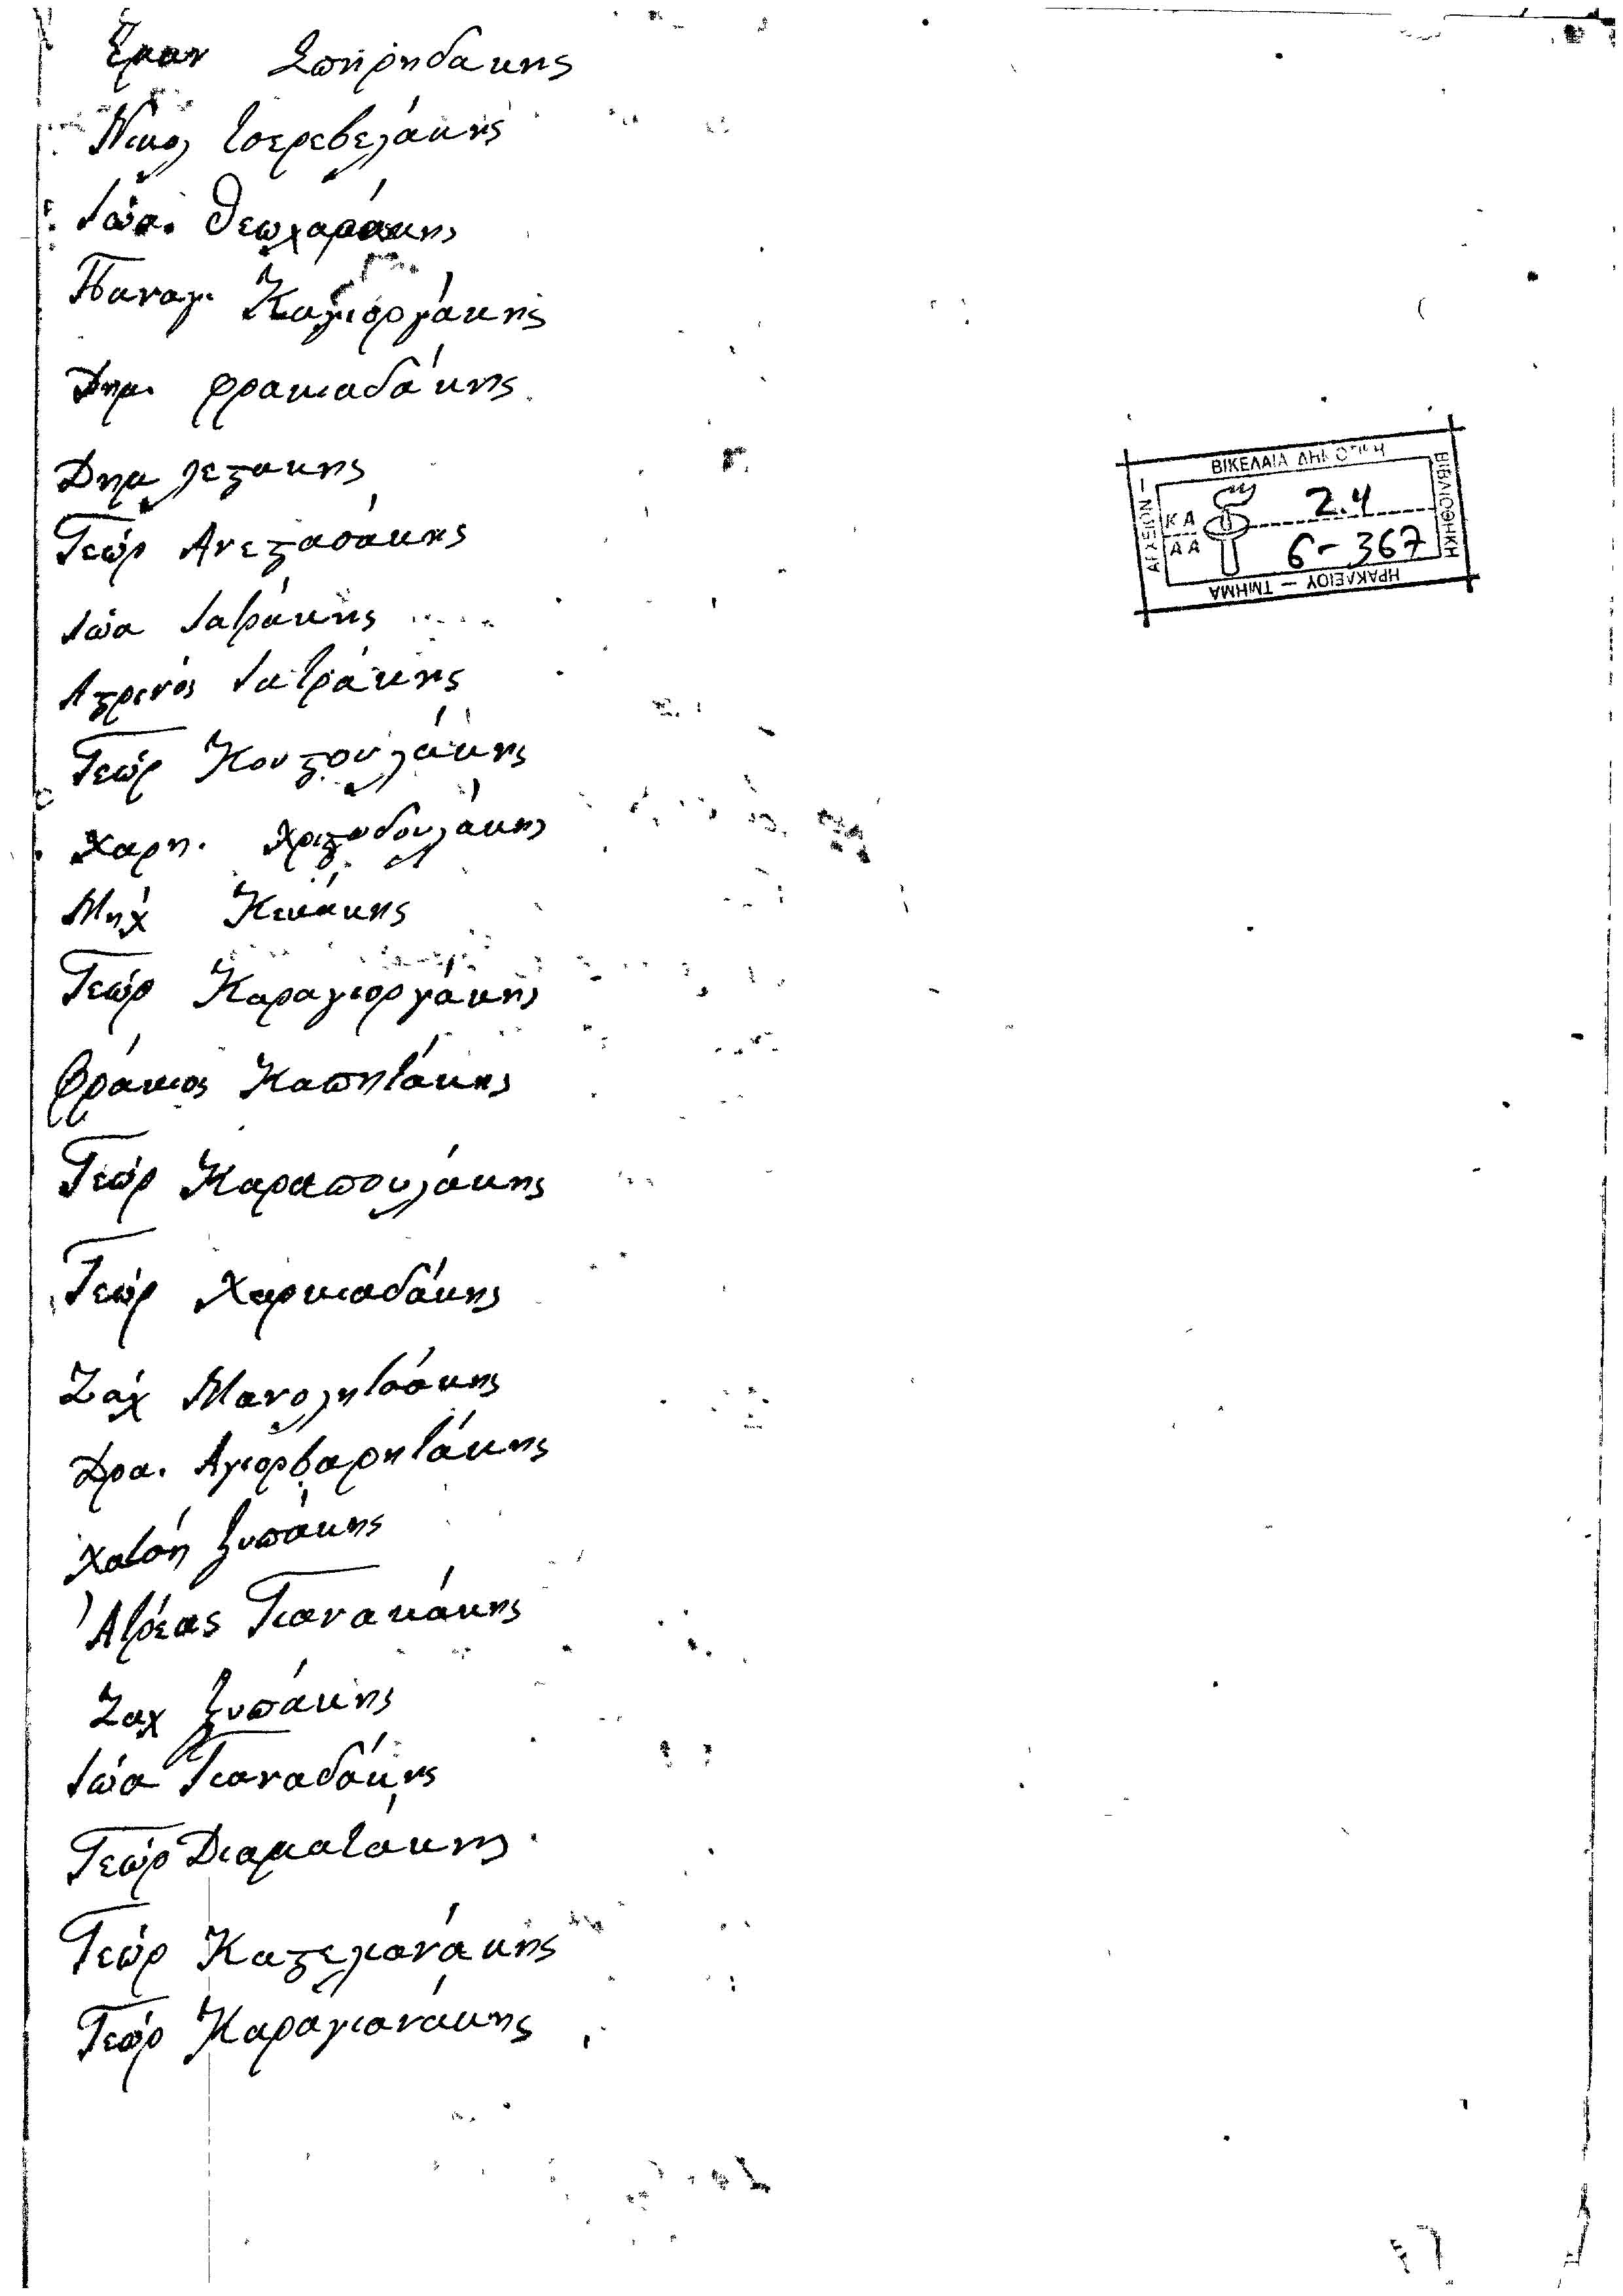 Εμαν Σπηρηδακης
Νικολ Τσερεβελάκης
Ιωα. Θεωχαράκης
Παναγ. Καλιοργάκης
Δημ. Φρακιαδάκης
Δημ λεξακης
Γεώρ Ανεξασάκης
Ιωα Ιατράκης
Λξρενός Ιατράκης
Γεώρ Κουξουλάκης
Χαρη. Χριξοδουλάκης
Μηχ Κικάκης
Γεώρ Καραγιοργάκης
Φράκιος Καπητάκης
Γεώρ Καραπουλάκης
Γεώρ Χαρκιαδάκης
Ζαχ Μανολητσάκης
Δρα. Αγιορβαρητάκης
Χατσή ξυπάκης
Ατρέας Γιανακάκης
Ζαχ ξυπάκης
Ιωα Γιαναδάκης
Γεώρ Διαματάκης
Γεώρ Καξελιανάκης
Γεώρ Καραγιανάκης
ΒΙΚΕΛΑΙΑ ΔΗΜΟΤΙΚΗ
ΒΙΒΛΙΟΘΗΚΗ
ΗΡΑΚΛΕΙΟΥ — ΤΜΗΜΑ
ΑΡΧΕΙΩΝ —
ΚΑ 2.4
ΑΑ 6-367